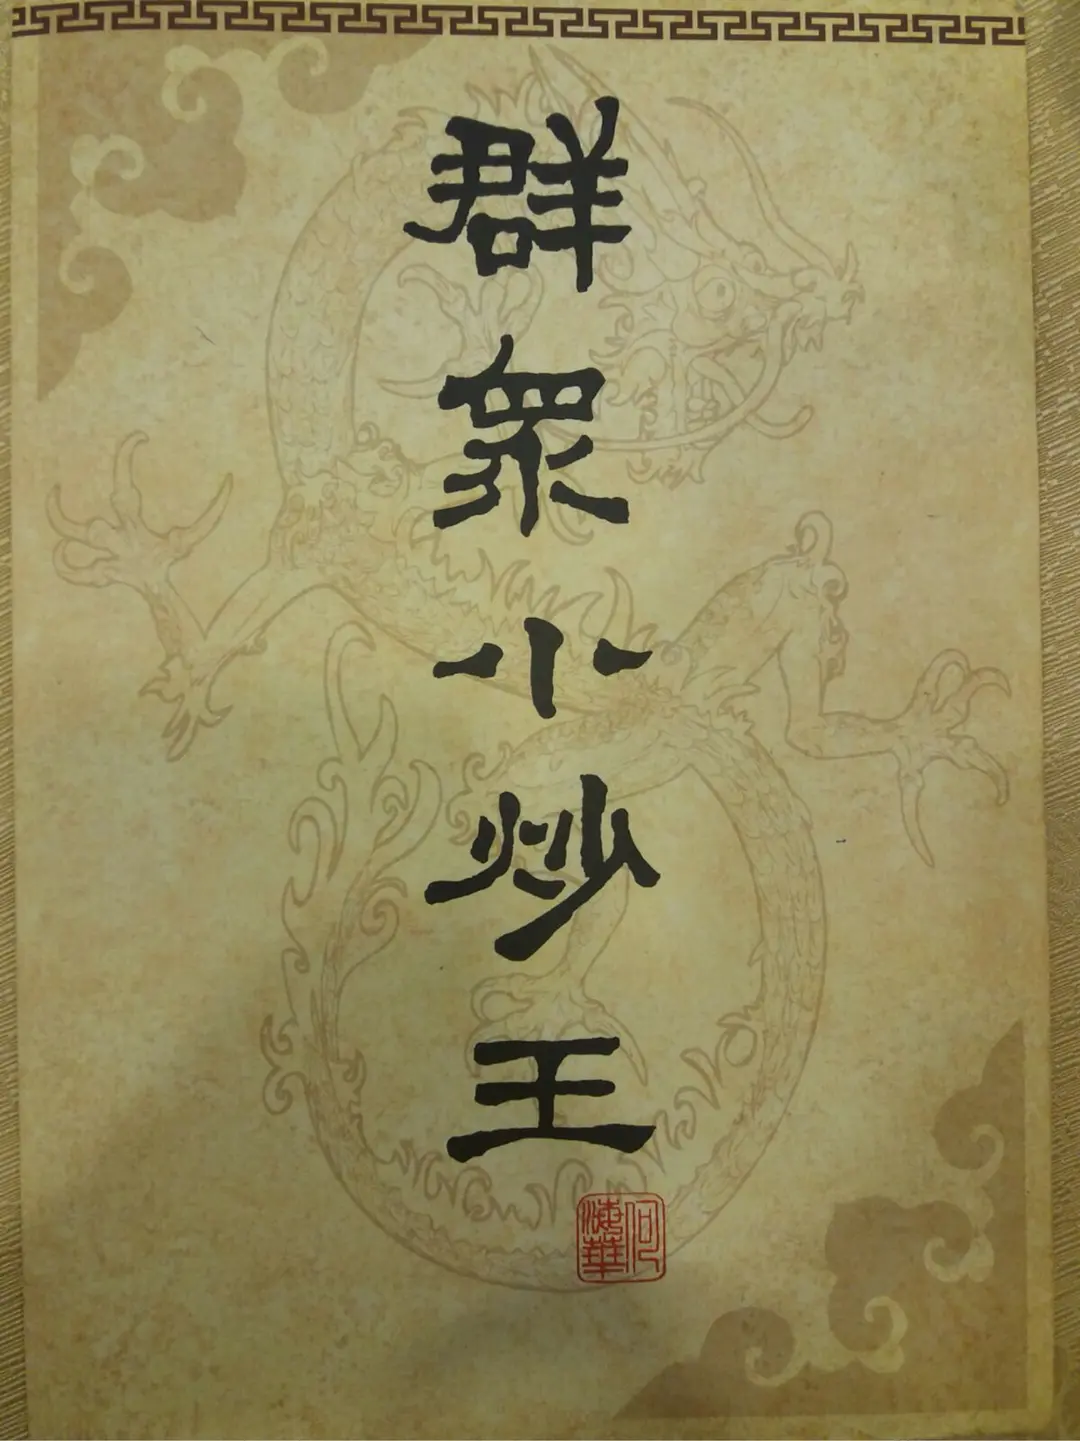 群眾小炒王
何海華